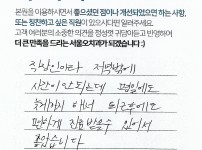 본원을 이용하시면서 좋으셨던 점이나 개선되었으면 하는 사항,
또는 칭찬하고 싶은 직원이 있으시다면 알려주세요.
고객 여러분의 소중한 의견을 정성껏 귀담아듣고 반영하여
더 큰 만족을 드리는 서울오치과가 되겠습니다 :)
직장인이라 저녁밖에
시간이 안되는데 평일에도
늦게까지 해서 퇴근후에도
편하게 진료 받을수 있어서
좋았습니다